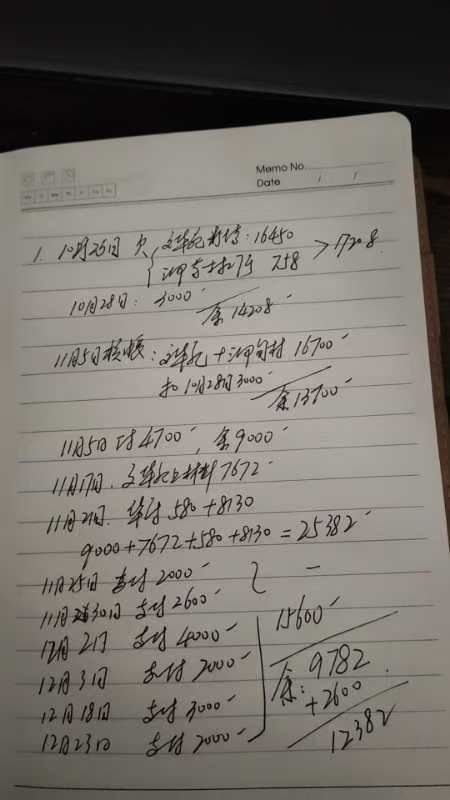 Memo No.
Date / /
1. 10月26日 欠 : 16450
758 > 17208
10月28日: 3000
余14208
11月5日核账: + 16700
扣10月28日3000
余13700
11月5日付4700, 余9000
11月17日, 材料7672
11月21日. 580+8130
9000+7672+580+8130=25382
11月25日 支付2000
11月30日 支付2600
12月2日 支付4000
12月3日 支付2000
12月18日 支付3000
12月23日 支付2000
15600
余: 9782
+2600
12382